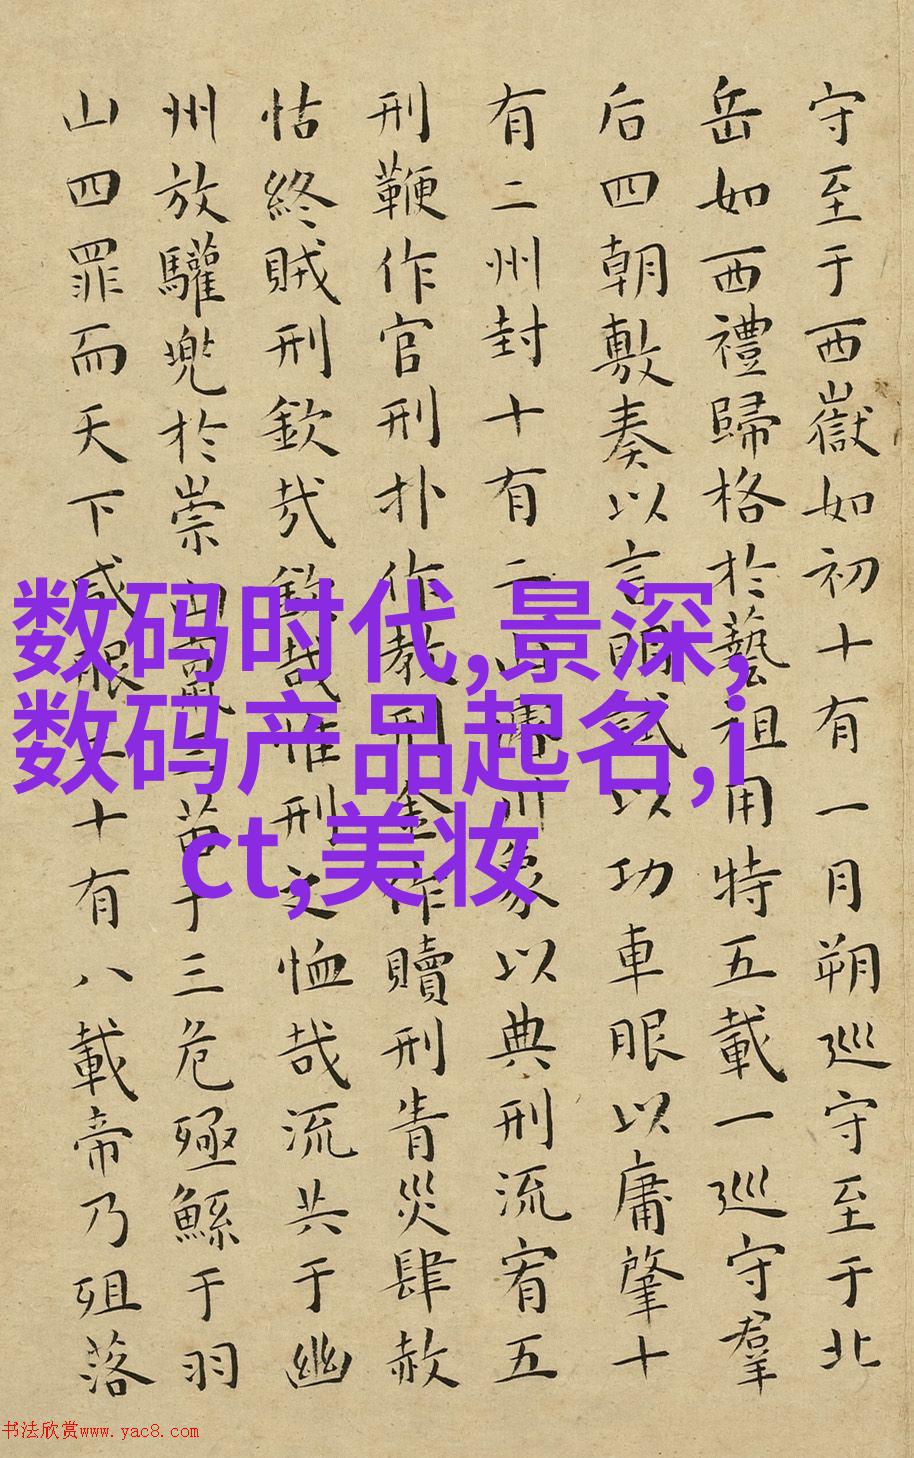 守至于西嶽如初十有一月朔巡守至于北
岳如西禮歸格於藝祖用特五載一巡守羣
后四朝敷奏以言明試以功車眼以庸肇十
有二州封十有二山濬川象以典刑流宥五
刑鞭作官刑扑作教刑金作贖刑眚災肆赦
怙終賊刑欽哉欽哉惟刑之恤哉流共于幽
州放驩兜於崇山竄三苗于三危殛鯀于羽
山四罪而天下咸服二十有八載帝乃殂落
数码时代,景深,
数码产品起名,i
ct,美妆
书法欣赏www.yac8.com